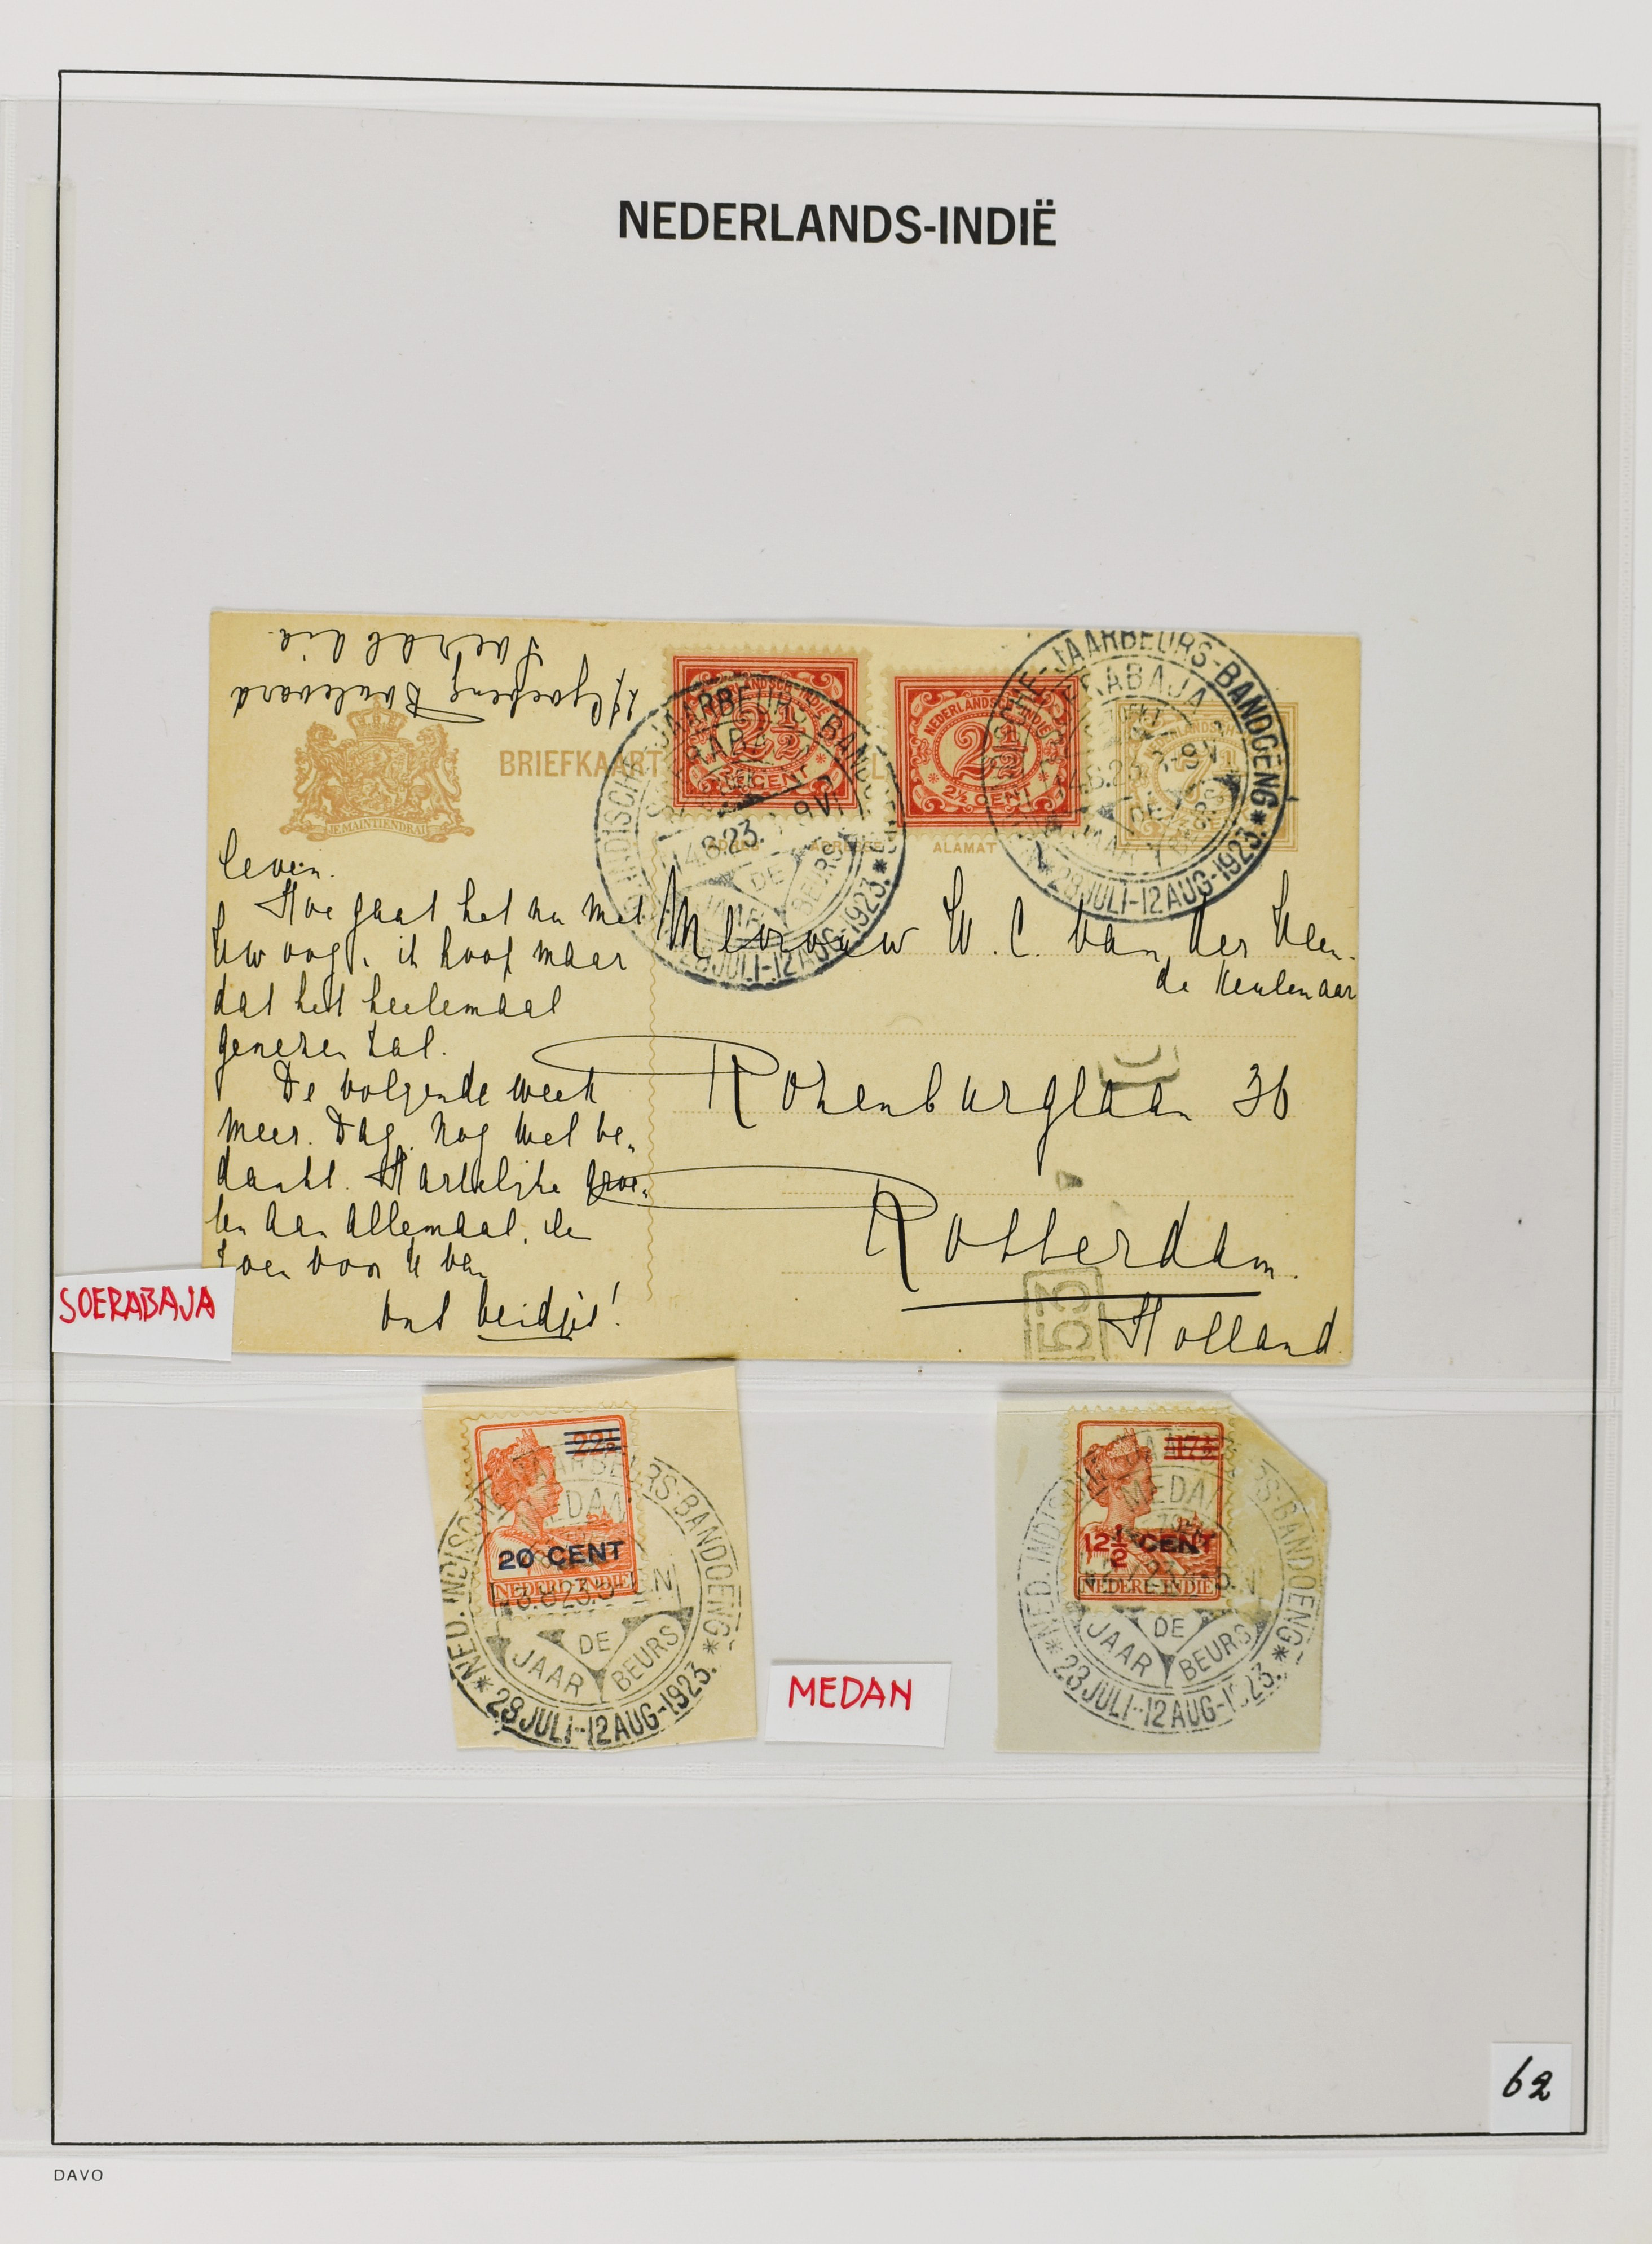 NEDERLANDS-INDIË
Soerabaia.
Boulevard
BRIEFKAART
JE MAINTIENDRAI
NEDERLANDSCH-INDIE
2½
2½ CENT
NEDERLANDSCH-INDIE
2½
2½ CENT
7½
JAARBEURS-BANDOENG
SOERABAJA
4.8.23. 9V.
DE JAARBEURS
28 JULI-12 AUG-1923.
JAARBEURS-BANDOENG
SOERABAJA
4.8.23. 8-9V.
DE JAARBEURS
28 JULI-12 AUG-1923.
ADRES ADRESSE ALAMAT
leven.
Hoe gaat het nu met
Uw oog, ik hoop maar
dat het heelemaal
genezen zal.
De volgende week
meer. Dag, nog wel be-
dankt. Hartelijke groe-
ten aan allemaal, en
zoen voor U van
ons beidjes!
Mevrouw W. C. van der Veen-
de Keulenaar
Rozenburglaan 36
Rotterdam.
Holland.
53
SOERABAJA
22½
20 CENT
NEDERL-INDIE
NED. INDISCHE JAARBEURS-BANDOENG
MEDAN
3.8.23.
DE
JAAR BEURS
28 JULI-12 AUG-1923.
MEDAN
17½
12½ CENT
NEDERL-INDIE
NED. INDISCHE JAARBEURS-BANDOENG
MEDAN
DE
JAAR BEURS
28 JULI-12 AUG-1923.
62
DAVO